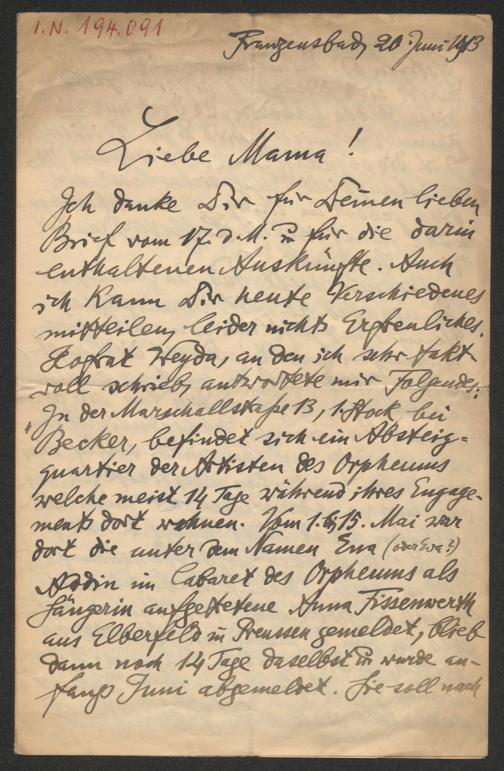 I.N. 194.091
Franzensbad, 20. Juni 1913
Liebe Mama!
Ich danke Dir für Deinen lieben
Brief vom 17. d. M. u. für die darin
enthaltenen Auskünfte. Auch
ich kann Dir heute Verschiedenes
mitteilen, leider nichts Erfreuliches.
Hofrat Weyda, an den ich sehr takt
voll schrieb, antwortete mir Folgendes:
"In der Marschallstraße 13, 1. Stock bei
Becker, befindet sich ein Absteig=
quartier der Artisten des Orpheums
welche meist 14 Tage während ihres Engage-
ments dort wohnen. Vom 1. 15. Mai war
dort die unter dem Namen Eva (oder Ewa?)
Addin im Cabaret des Orpheums als
Sängerin aufgetretene Anna Tissenwerth
aus Elberfeld in Preussen gemeldet, blieb
dann noch 14 Tage daselbst u. wurde an-
fangs Juni abgemeldet. Sie soll nach